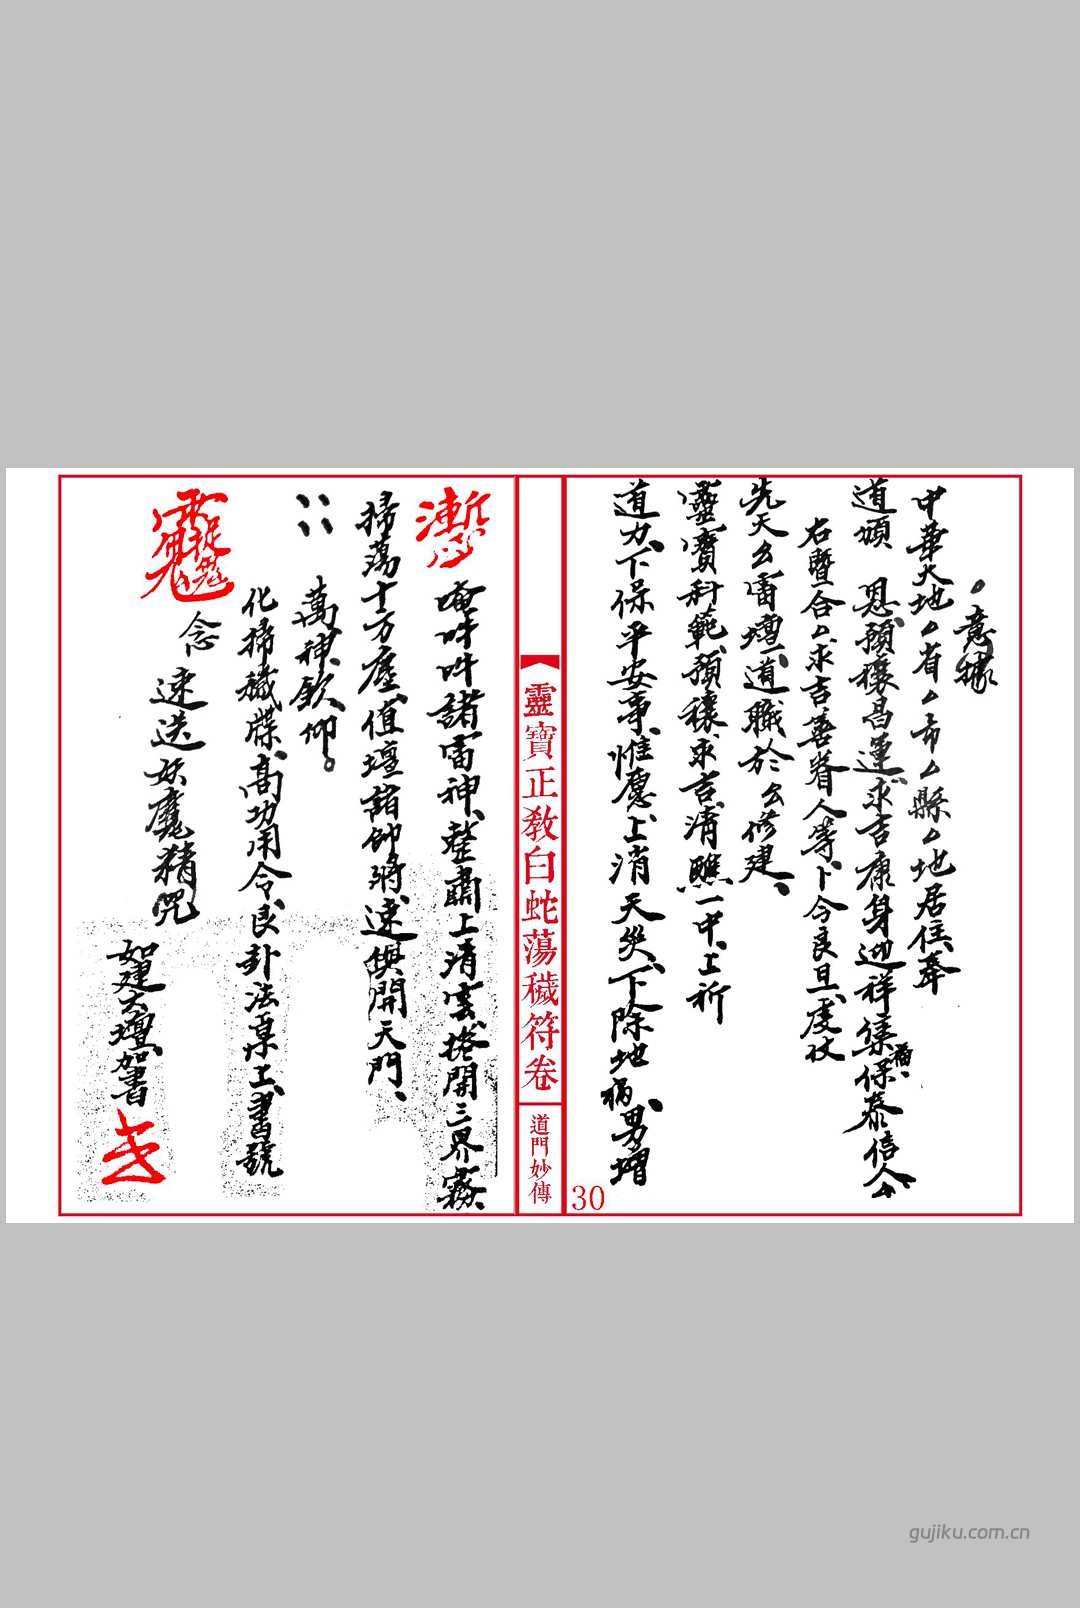 。意據
中華大地厶省厶市厶縣厶地居住奉
道頌 恩預禳昌運、求吉康身迎祥集福、保泰信人、
右暨合厶求吉善眷人等、卜今良旦、虔仗
先天厶雷壇、道職於厶修建、
靈寶科範、預禳求吉、清醮一中、上祈
道力、下保平安事、惟愿上消天災、下除地禍、男增
靈寶正教白蛇蕩穢符卷
道門妙傳
30
唵吽吽諸雷神、整肅上清雲、撥開三界霧
掃蕩十方塵、值壇諸帥將、速俱開天門、
萬神欽仰。
化掃穢牒、高功用令、艮卦法桌上、書號
念
速送妖魔精咒
如建大壇、加書
gujiku.com.cn